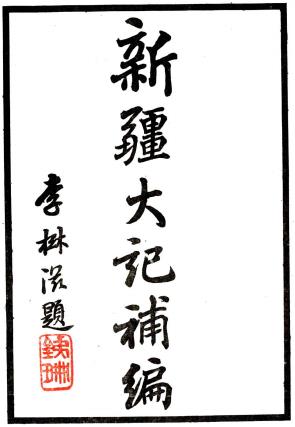 新疆大記補編
李滋題